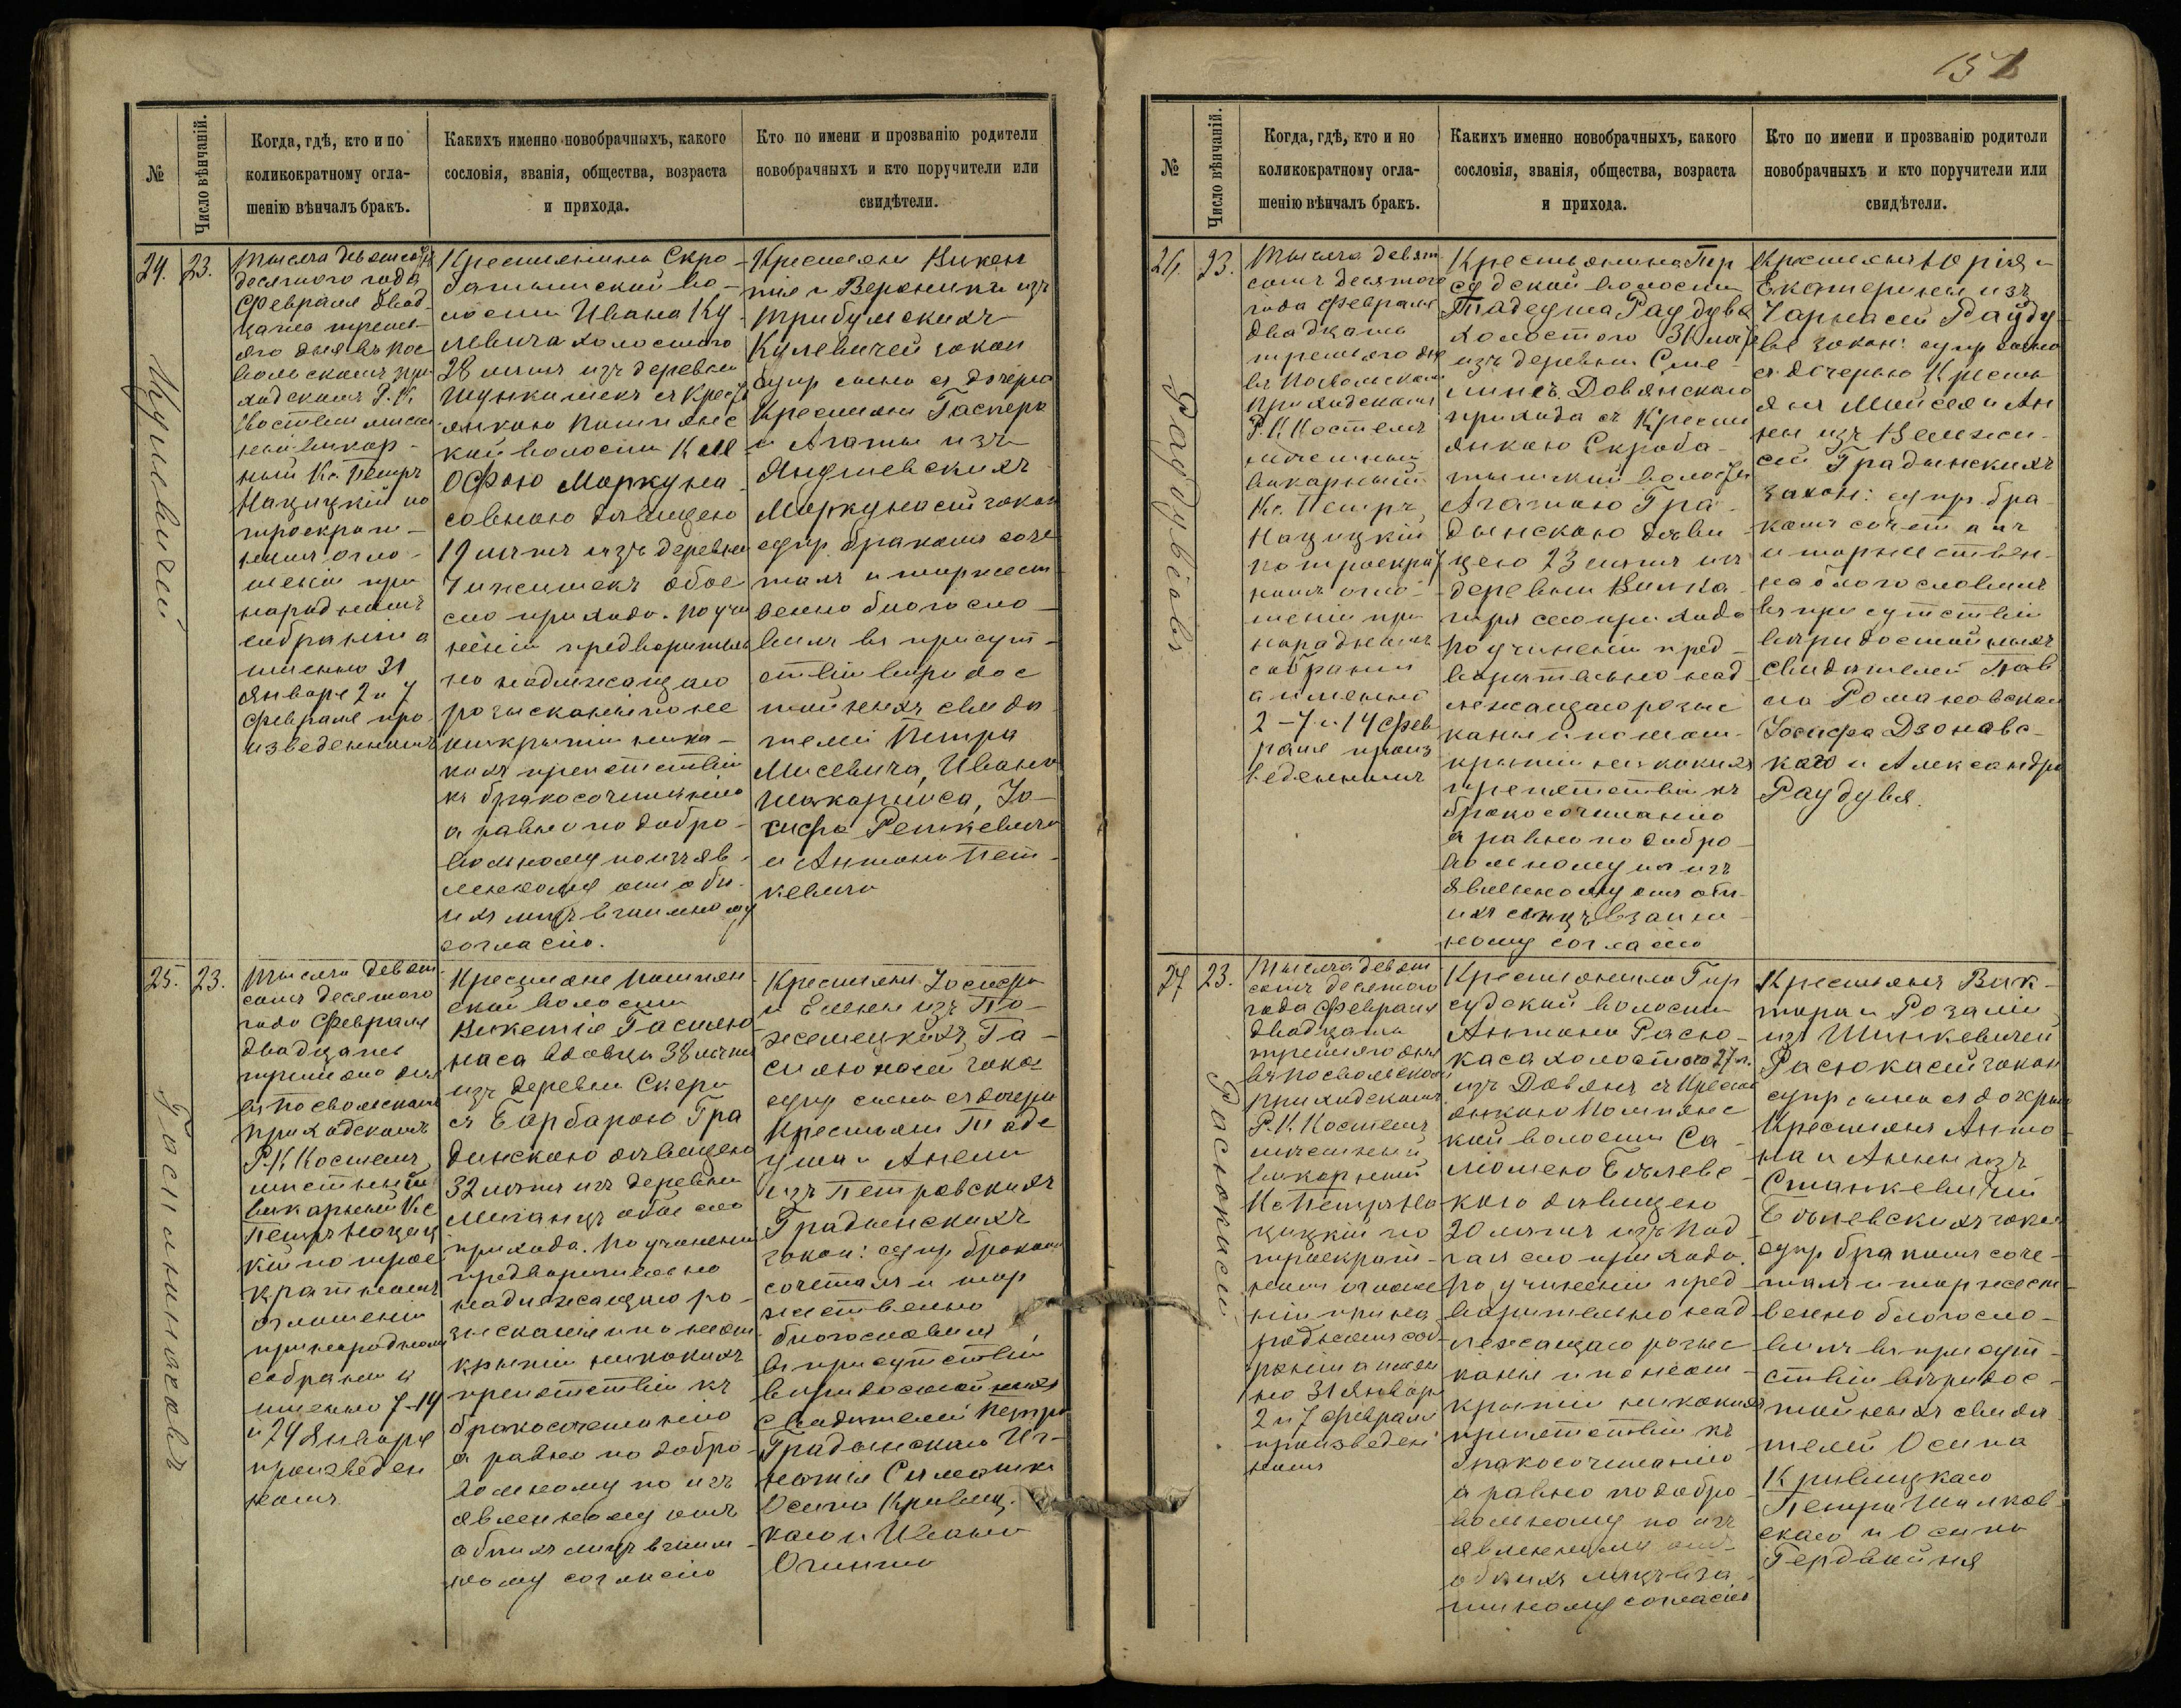 151
№
Число вѣнчаній.
Когда, гдѣ, кто и по
коликократному огла-
шенію вѣнчалъ бракъ.
Какихъ именно новобрачныхъ, какого
сословія, званія, общества, возраста
и прихода.
Кто по имени и прозванію родители
новобрачныхъ и кто поручители или
свидѣтели.
24.
23.
Тысяча девятсотъ
десятого года
Февраля двад
цать треть-
яго дня въ Пос
вольскомъ при
ходскомъ Р. К.
Костелѣ мѣст
ный викар-
ный Кс. Петръ
Нацицкій по
троекрат-
номъ огло-
шеніи при
народномъ
собраніи а
именно 31
Января 2 и 7
Февраля про
изведенномъ
Крестьянина Скро-
батишской во-
лости Ивана Ку
левича холостого
28 лѣтъ изъ деревни
съ Крест
янкою Попъянс
кой волости
Офью Моркуна
совною дѣвицею
19 лѣтъ изъ деревни
обое
сго прихода. По учи
неніи предварительн
но надлежащаго
розысканія и по не
открытіи ника-
кихъ препятствій
къ бракосочитанію
а равно по добро-
вольному по изъяв-
ленному отъ обѣ-
ихъ лицъ взаимному
согласію.
Крестьянъ Викен
тія и Вероники изъ
Трибулскихъ
Кулевичей закон
супр сына съ дочерю
Крестьянъ Гаспера
и Агаты изъ
Янушевскихъ
Моркунасей закон
супр. бракомъ соче
талъ и торжест
венно благосло-
вилъ въ присут-
ствіи вѣродос
тойныхъ свидѣ
телей Петра
Мисевича, Ивана
Шакарниса, Іо-
сифа Решкевича
и Антона Пет-
кевича
Кулевичей
25.
23.
Тысяча девят
сотъ десятого
года Февраля
двадцать
третяго дня
въ Посвольскомъ
приходскомъ
Р. К Костелѣ
мѣстный
викарный Кс
Петръ Нациц
кій по трое
кратномъ
оглошеніи
при народномъ
собраніи а
именно 7-14
и 24 Января
произведен
номъ
Крестьянъ Попъян
ской волости
Викентія Гасюно
наса вдовца 38 лѣтъ
изъ деревни Скери
съ Барбарою Гра
динскою дѣвицею
32 лѣтъ изъ деревни
обое сго
прихода. По учинени
предварительно
надлежащаго ро-
зысканія и по неот
крытіи никакихъ
препятствій къ
бракосочетанію
а равно по добро-
вольному по изъ
явленному отъ
обѣихъ лицъ взаим
ному согласію
Крестьянъ Іосифа
и Елены изъ По-
жемецкихъ Га-
сюнасей закон
супр сына съ дочерю
Крестьянъ Таде
уша и Анели
изъ Петровскихъ
Градынскихъ
закон: супр бракомъ
сочеталъ и тор
жественно
благословилъ
въ присутствіи
вѣродостойныхъ
свидѣтелей Петра
Градынскаго Иг-
натія Симашки
Осипа Кривиц-
каго и Ивана
Огинта
№
Число вѣнчаній.
Когда, гдѣ, кто и по
коликократному огла-
шенію вѣнчалъ бракъ.
Какихъ именно новобрачныхъ, какого
сословія, званія, общества, возраста
и прихода.
Кто по имени и прозванію родители
новобрачныхъ и кто поручители или
свидѣтели.
26.
23.
Раудувіовъ
Тысяча девят
сотъ десятого
года Февраля
двадцать
третьяго дня
въ Посвольскомъ
приходскомъ
Р. К Костелѣ
мѣстный
викарный
Кс. Петръ
Нацицкій
по троекрат
номъ огло-
шеніи при
народномъ
собраніи
а именно
2-7 и 14 Фев
раля произ
веденномъ
Крестьянина Гир
судской волости
Тадеуша Раудувя
холостого 31 лѣтъ
изъ деревни Сме-
Довянскаго
прихода съ Крестьи
янкою Скроба-
тышской волости
Агатою Гра-
дынскою дѣви
цею 23 лѣтъ изъ
деревни
сего прихода
По учиненіи пред-
варительно над
лежащаго розыс
канія и по неот-
крытіи никакихъ
препятствій къ
бракосочитанію
а равно по добро-
вольному по изъ
явленному отъ обѣ-
ихъ лицъ взаим-
ному согласію
Крестьянъ Юрія и
Екатерины изъ
Чарнасей Рауду
вѣ закон: супр сына
съ дочерью Кресть
янъ Мойсея и Ан
ны изъ
сей Градынскихъ
закон: супр бра-
комъ сочеталъ
и торжествен-
но благословилъ
въ присутствіи
вѣродостойныхъ
свидѣтелей Пав
ла Романовскаго
Іосифа Дзонавс-
каго и Александра
Раудувя.
27
23.
Расюкасей
Тысяча девят
сотъ десятого
года Февраля
двадцать
третьяго дня
въ Посвольскомъ
приходскомъ
Р. К. Костелѣ
мѣстный
викарный
Кс Петръ На
цицкій по
троекрат-
номъ оглоше
ніи при на
родномъ соб
раніи а имен
но 31 Января
2 и 7 Февраля
произведен
номъ
Крестьянина Гир
судской волости
Антона Расю-
каса холостого 27 л.
изъ Довянъ съ Кресть
янкою Попъянс
кой волости Са-
ломеею Бѣлевс-
кою дѣвицею
20 лѣтъ изъ
сго прихода.
По учиненіи пред
варительно над
лежащаго розыс
канія и по неот-
крытіи никакихъ
препятствій къ
бракосочитанію
а равно по добро-
вольному по изъ
явленному отъ
обѣихъ лицъ вза-
имному согласію
Крестьянъ Вик-
тора и Розаліи
изъ Шинкевичей
Расюкасей закон
супр сына съ дочерью
Крестьянъ Анто
на и Анны изъ
Станкевичей
Бѣлевскихъ закон
супр бракомъ соче-
талъ и торжест
венно благосло-
вилъ въ присут-
ствіи вѣродос-
тойныхъ свидѣ
телей Осипа
Кривицкаго
Петра Шилков
скаго и Осипа
Гердвойня
Гасюнасовъ